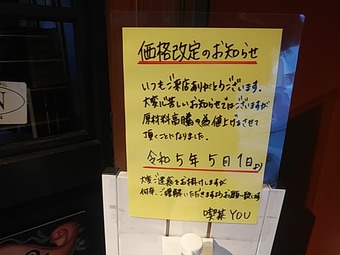 価格改定のお知らせ
いつもご来店ありがとうございます。
大変に苦しいお知らせではございますが
原材料高騰の為値上げさせて
頂くことになりました。
令和5年5月1日より
大変ご迷惑をお掛けしますが
何卒、ご理解いただきますようお願い致します
喫茶 YOU
N